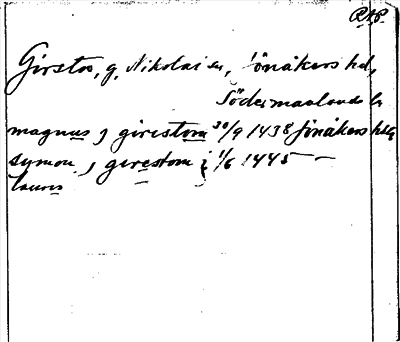 R.A.P.
Girsta, g. Nikolai sn, Jönåkers hd,
Södermanlands l.
magnus j girestom 30/9 1438 jönåkers hd
symon j gerestom 1/6 1445 —
lauris